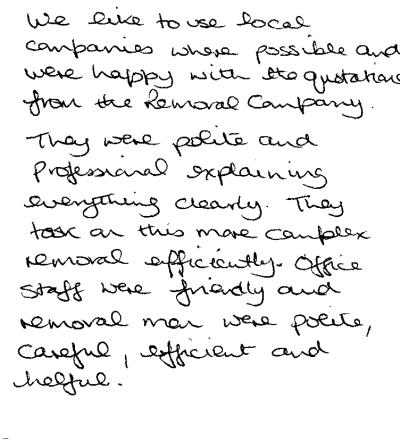 We like to use local
companies where possible and
were happy with the quotation
from the Removal Company.
They were polite and
Professional explaining
everything clearly. They
took on this more complex
removal efficiently. Office
staff were friendly and
removal men were polite,
careful, efficient and
helpful.